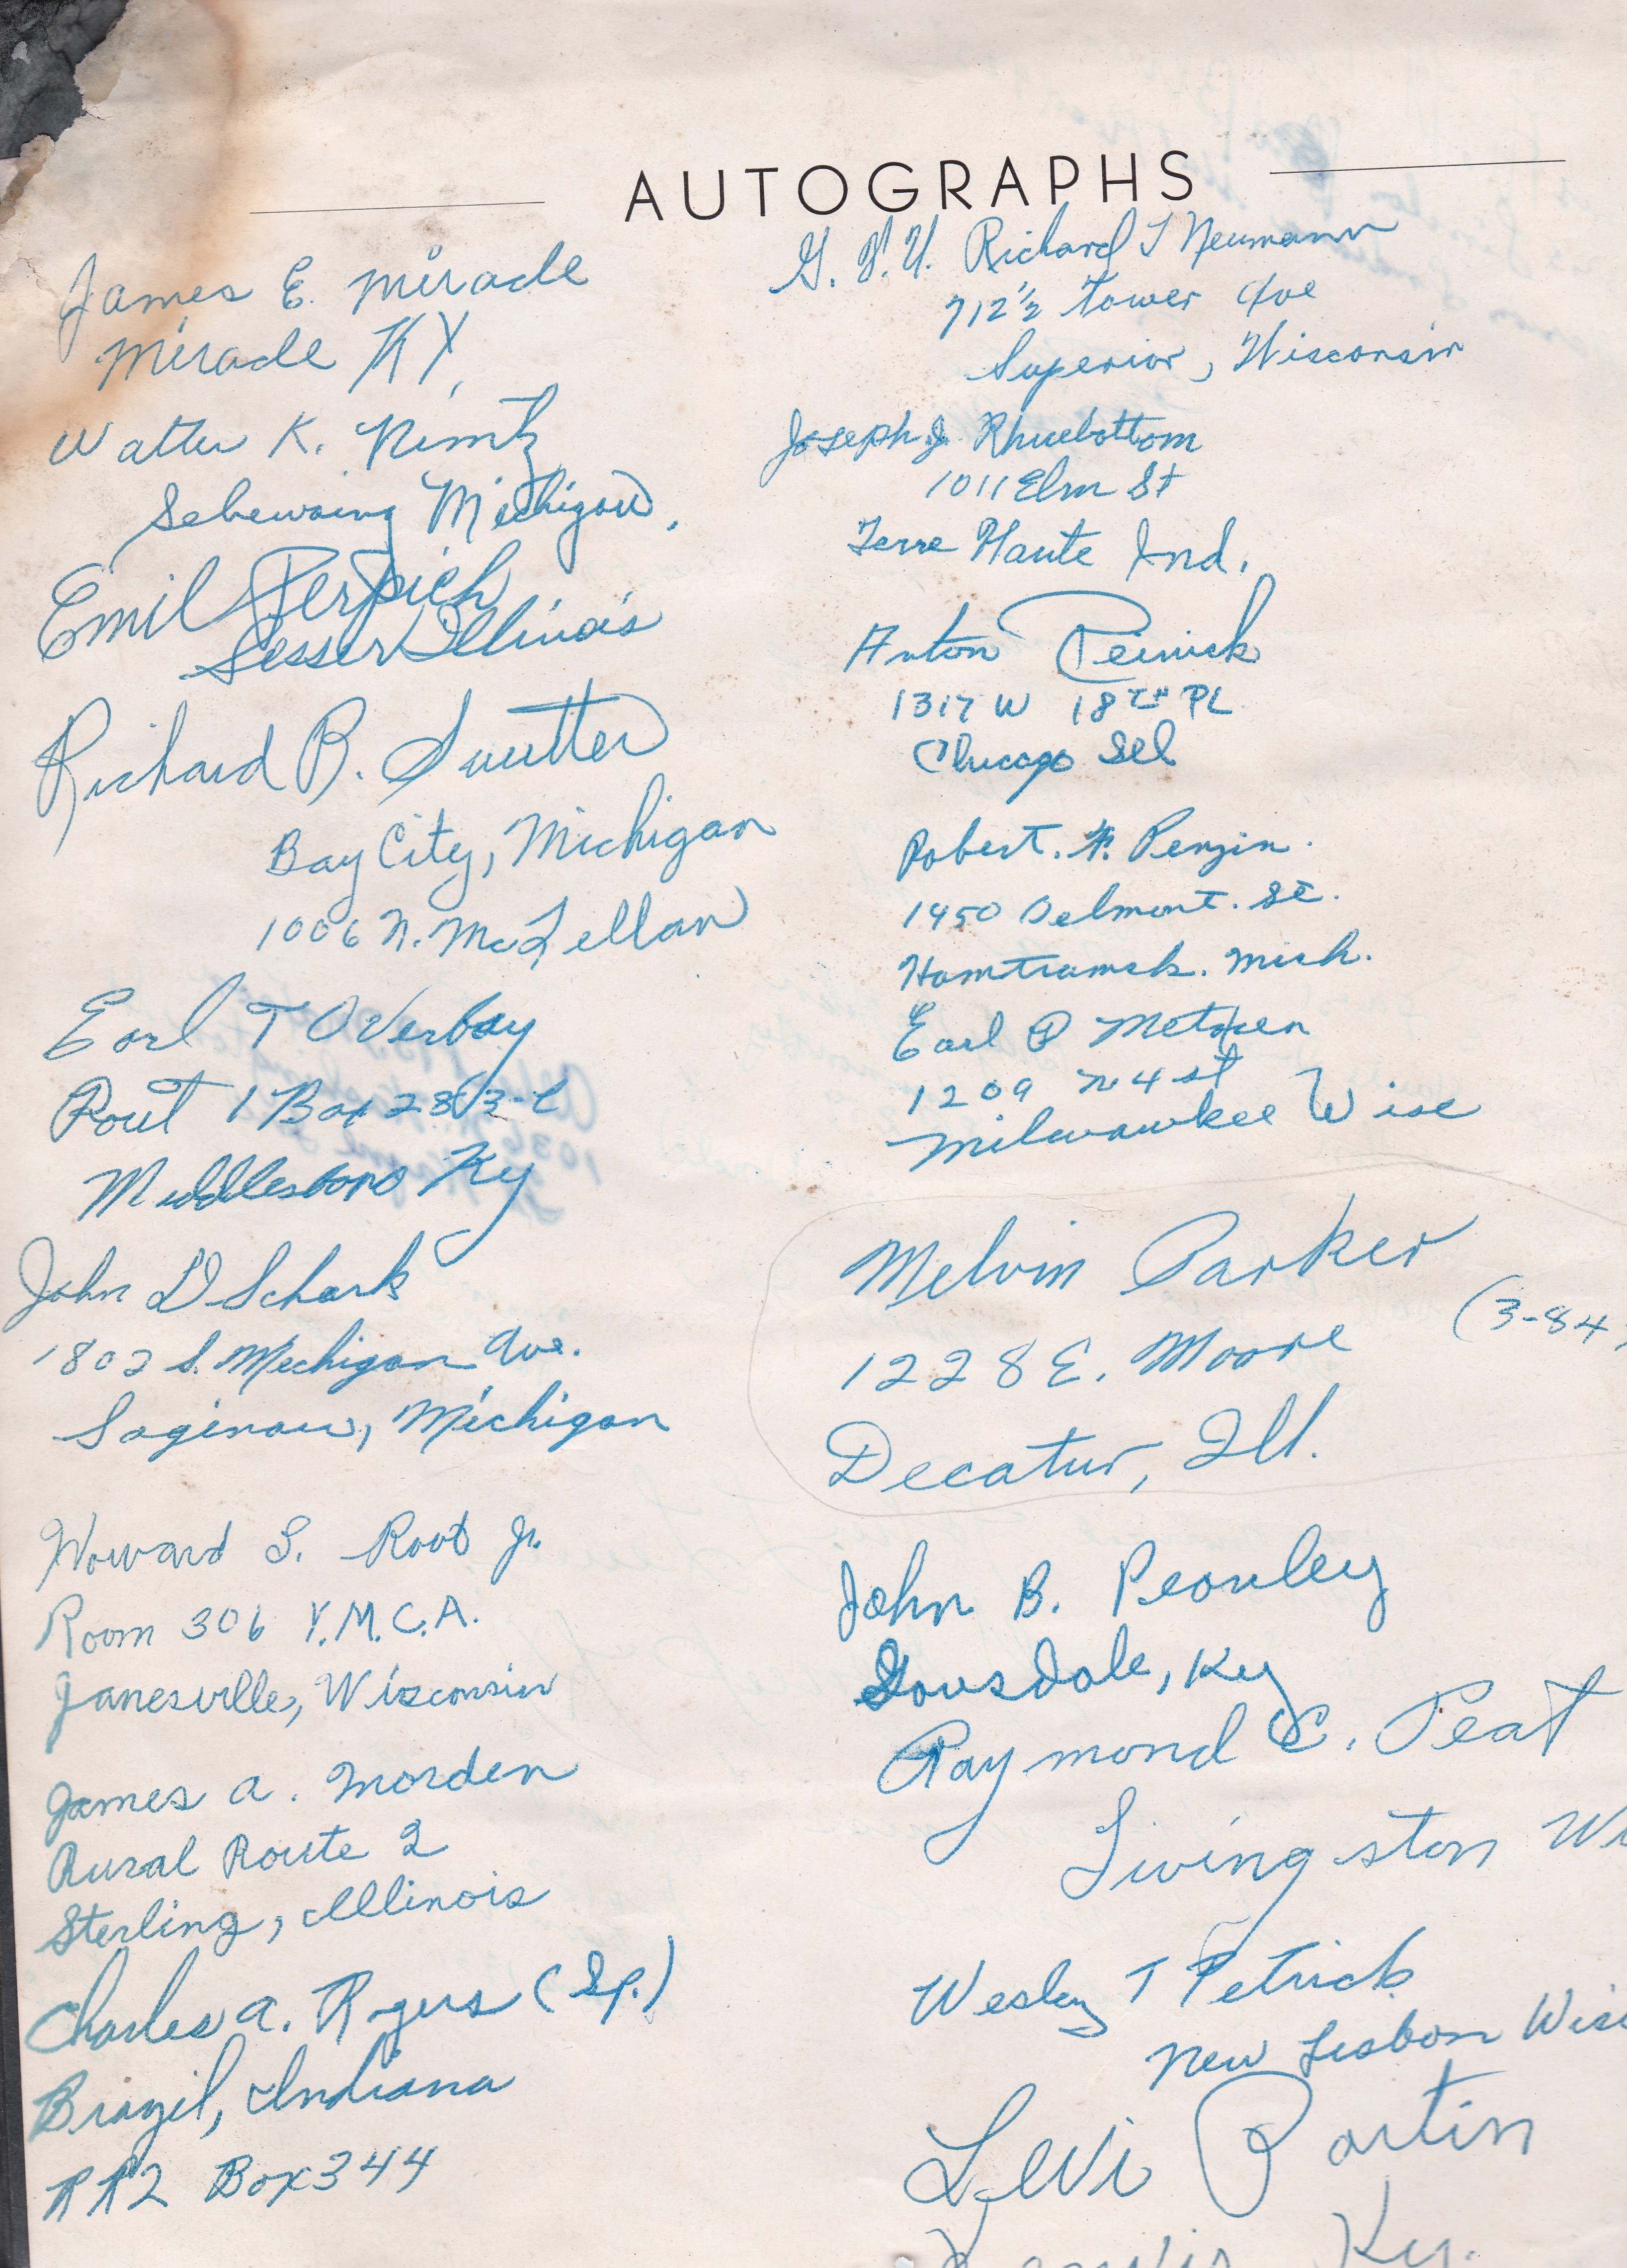 AUTOGRAPHS
James E. Miracle
Miracle KY.
Walter K. Nimtz
Sebewaing Michigan.
Emil Perpich
Sesser Illinois
Richard B.
Bay City, Michigan
1006 N. McLellan
Earl T Overbay
Rout 1 Box 283-C
Middlesboro Ky
John D Schark
1802 S. Michigan Ave.
Saginaw, Michigan
Howard S. Root Jr.
Room 306 Y.M.C.A.
Janesville, Wisconsin
James A. Morden
Rural Route 2
Sterling, Illinois
Charles A. Rogers (Sp.)
Brazil, Indiana
RR2 Box 344
Richard J Neumann
712½ Tower Ave
Superior, Wisconsin
Joseph J. Rhuebottom
1011 Elm St
Terre Haute Ind.
Anton
1317 W 18TH PL
Chicago Ill
Robert. F. Penzin.
1950 Belmont. St.
Hamtramck. Mich.
Earl P
1209 N 4 st
Milwaukee Wisc
Melvin Parker
1228 E. Moore (3-84)
Decatur, Ill.
John B.
Ky
Raymond C. Peat
Livingston Wi
Wesley T Petrick
New Lisbon Wis
Levi Partin
Ky.